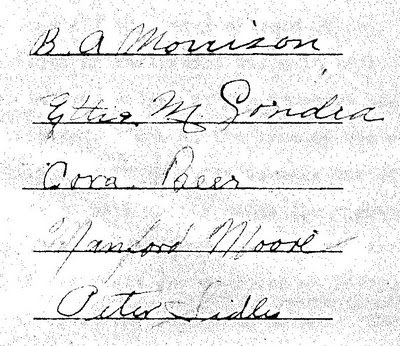 B. A Morrison
Ettie M Gondra
Cora Beer
Manford Moore
Peter Sidles